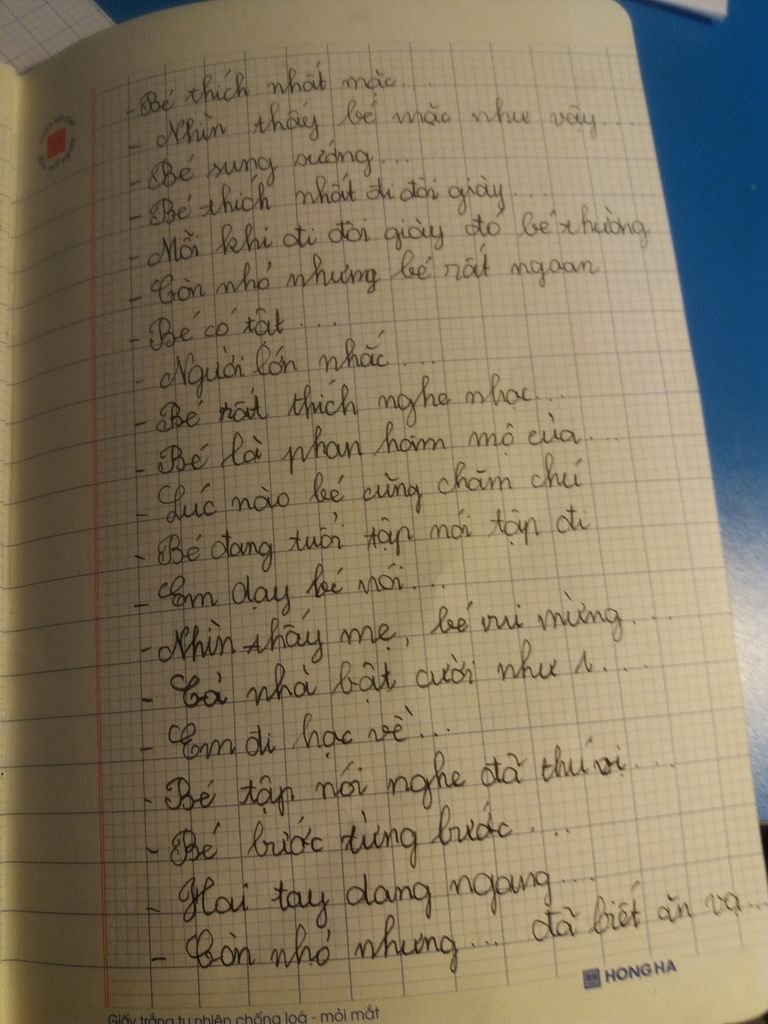 - Bé thích nhất mặc...
- Nhìn thấy bé mặc như vậy...
- Bé sung sướng...
- Bé thích nhất đi đôi giày...
- Mỗi khi đi đôi giày đó bé thường
- Còn nhỏ nhưng bé rất ngoan
- Bé có tật...
- Người lớn nhắc...
- Bé rất thích nghe nhạc...
- Bé là phan hâm mộ của...
- Lúc nào bé cũng chăm chú
- Bé đang tuổi tập nói tập đi
- Em dạy bé nói...
- Nhìn thấy mẹ, bé vui mừng...
- Cả nhà bật cười như 1...
- Em đi học về...
- Bé tập nói nghe đã thú vị...
- Bé bước từng bước...
- Hai tay dang ngang...
- Còn nhỏ nhưng... đã biết ăn vạ...
HONG HA
Giấy trắng tự nhiên chống loá - mỏi mắt